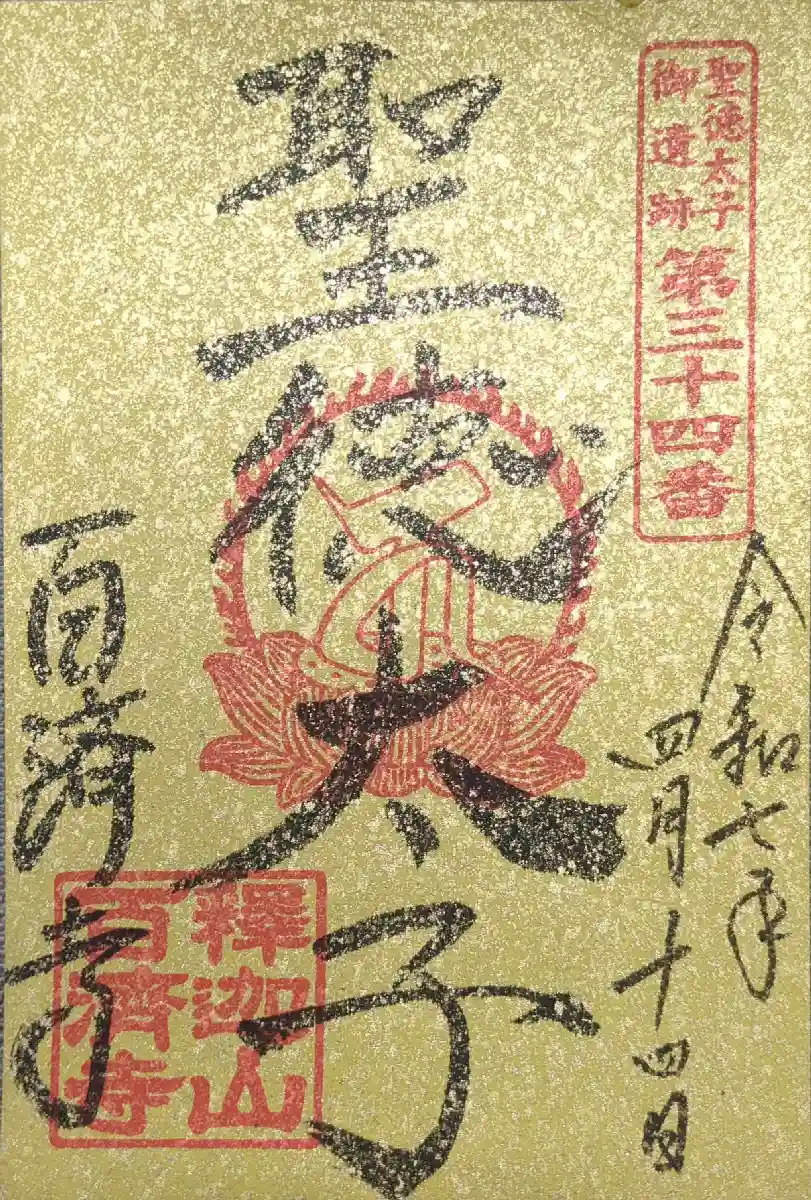 聖徳太子
御遺跡
第三十四番
令和七年
四月十四日
聖徳太子
百済寺
釋迦山
百濟寺